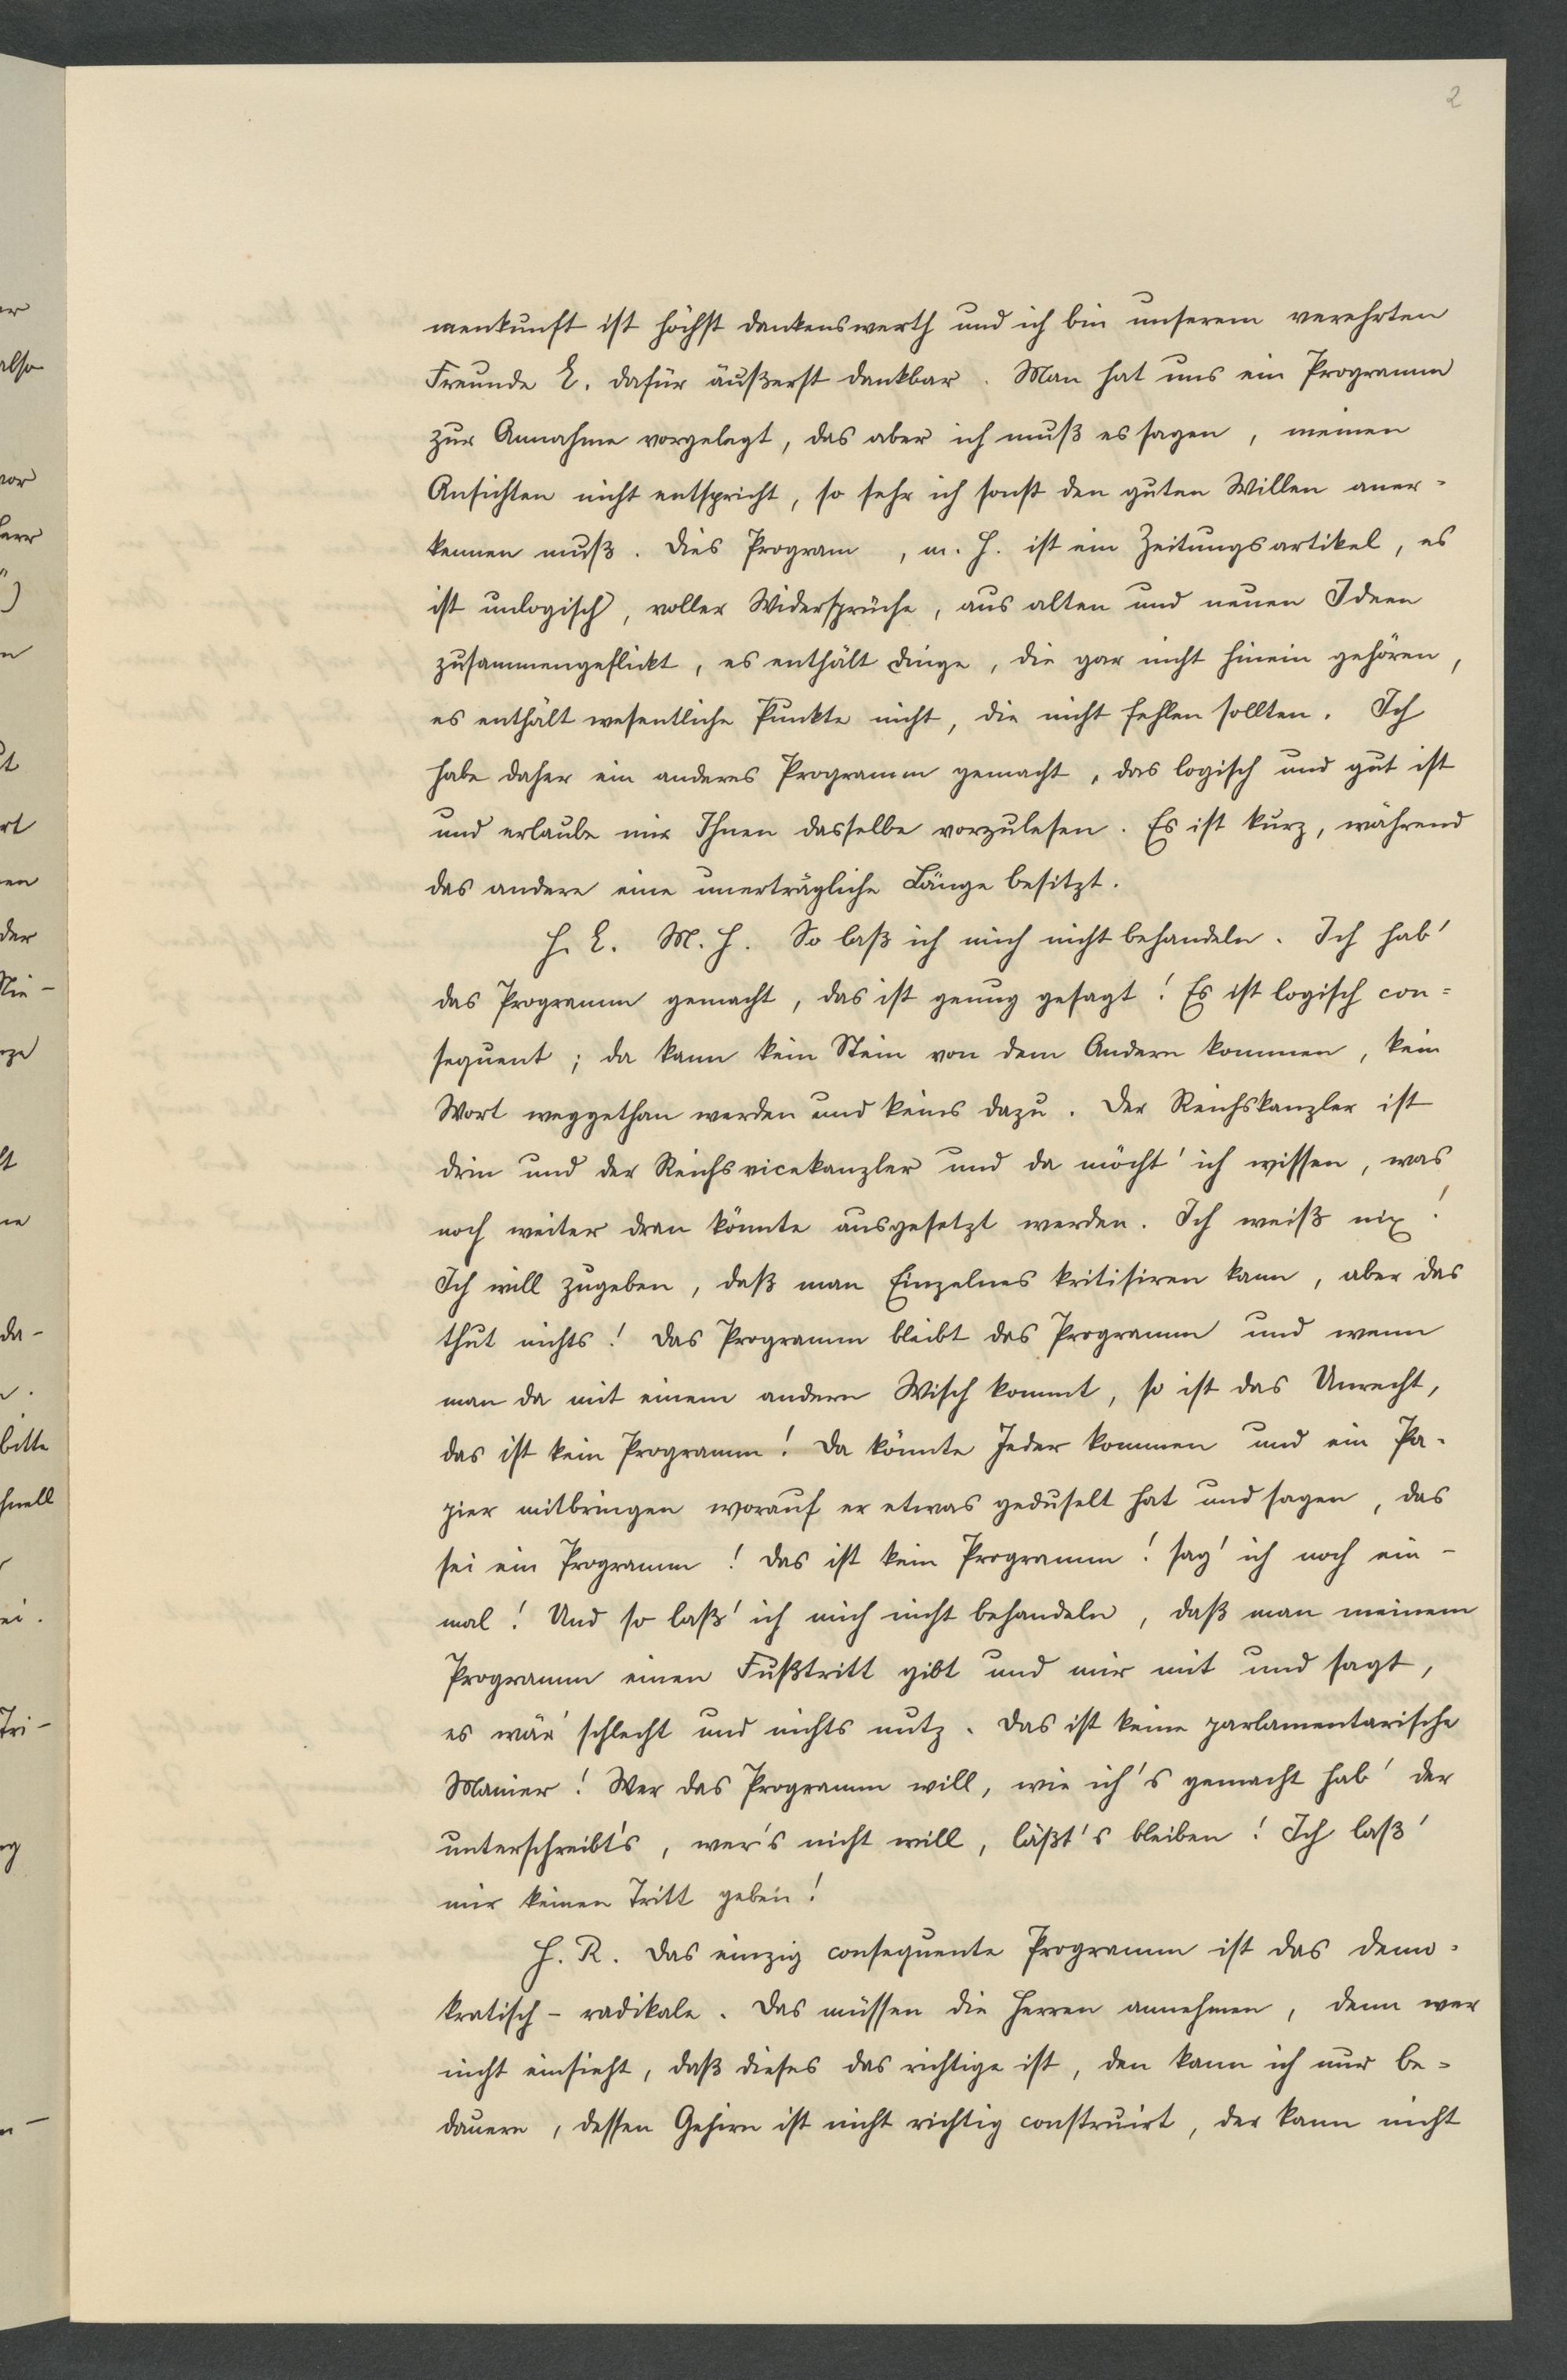 2
menkunft ist höchst dankenswerth und ich bin unserem verehrten
Freunde E. dafür äußerst dankbar. Man hat uns ein Programm
zur Annahme vorgelegt, das aber ich muß es sagen, meinen
Ansichten nicht entspricht, so sehr ich sonst den guten Willen aner-
kennen muß. Dies Program, m. H. ist ein Zeitungsartikel, es
ist unlogisch, voller Widersprüche, aus alten und neuen Ideen
zusammengeflickt, es enthält Dinge, die gar nicht hinein gehören,
es enthält wesentliche Punkte nicht, die nicht fehlen sollten. Ich
habe daher ein anderes Programm gemacht, das logisch und gut ist
und erlaube mir Ihnen dasselbe vorzulesen. Es ist kurz, während
das andere eine unerträgliche Länge besitzt.
H. E. M. H. So laß ich mich nicht behandeln. Ich hab'
das Programm gemacht, das ist genug gesagt! Es ist logisch con=
sequent; da kann kein Stein von dem Andern kommen, kein
Wort weggethan werden und keins dazu. Der Reichskanzler ist
drin und der Reichsvicekanzler und da möcht' ich wissen, was
noch weiter dran könnte ausgesetzt werden. Ich weiß nix!
Ich will zugeben, daß man Einzelnes kritisiren kann, aber das
thut nichts! Das Programm bleibt das Programm und wenn
man da mit einem andern Wisch kommt, so ist das Unrecht,
das ist kein Programm! Da könnte Jeder kommen und ein Pa-
pier mitbringen worauf er etwas geduselt hat und sagen, das
sei ein Programm! Das ist kein Programm! sag' ich noch ein-
mal! Und so laß' ich mich nicht behandeln, daß man meinem
Programm einen Fußtritt gibt und mir mit und sagt,
es wär' schlecht und nichts nutz. Das ist keine parlamentarische
Manier! Wer das Programm will, wie ich's gemacht hab' der
unterschreibt's, wer's nicht will, läßt's bleiben! Ich laß'
mir keinen Tritt geben!
H. R. Das einzig consequente Programm ist das demo-
kratisch-radikale. Das müssen die Herren annehmen, denn wer
nicht einsieht, daß dieses das richtige ist, den kann ich nur be-
dauern, dessen Gehirn ist nicht richtig construirt, der kann nicht